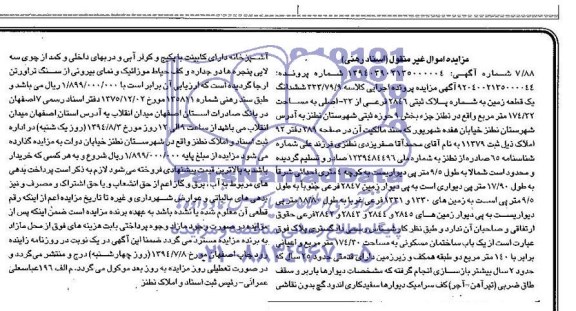 مزایده اموال غیر منقول (اسناد رهنی)
۷/۸۸ شماره آگهی: ۱۳۹۴۰۳۹۰۳۱۳۵۰۰۰۰۰۴ شماره پرونده:
۹۲۰۴۰۰۲۱۳۵۰۰۰۰۴۴ پرونده اجرایی کلاسه ۳۲۳/۷۹/۹ ششدانگ
یک قطعه زمین به شماره پلاک ثبتی ۲۸۴۶ فرعی از ۲۲-اصلی به مساحت
۱۷۴/۲۲ متر مربع واقع در نطنز جزء بخش ۹ حوزه ثبتی شهرستان نطنز به آدرس
شهرستان نطنز خیابان هفده شهریور که سند مالکیت آن در صفحه ۲۸۷ دفتر ۹۲
املاک ذیل ثبت ۱۱۳۷۹ به نام آقای سعید آقا صفریزدی نطنزی فرزند علی شماره
شناسنامه ۶۵ صادره از نطنز به شماره ملی ۱۲۳۹۴۸۴۹۶ صادر و تسلیم گردیده
و محدود است شمالا به طول ۹/۵ متر پی دیوار به کوچه ۶ متری احداثی شرقا
به طول ۱۷/۹۰ متر پی دیواری است به پی دیوار زمین ۲۸۴۷ فرعی جنوبا به طول
۹/۵ متر پی است به زمین های ۱۳۳۰ و ۱۳۳۱ فرعی غربا به طول ۱۷/۸۰ متر پی
دیواریست به پی دیوار زمین های ۲۸۴۵ و ۲۸۴۴ و ۲۸۴۳ و ۲۸۴۲ فرعی حقوق
ارتفاقی و صاحبان آن ندارد و طبق نظر کارشناس رسمی دادگستری پلاک فوق
عبارت است از یک باب ساختمان مسکونی به مساحت ۱۷۴/۳۰ متر مربع و اعیانی
برابر با ۱۴۰ متر مربع دو طبقه همکف و زیرزمین دارای قدمتی حدود ۲۵ سال که
حدود ۲ سال پیشتر بازسازی انجام گرفته که مشخصات دیوارها باربر و سقف
طاق ضربی (تیرآهن - آجر) کف سرامیک دیوارها سفیدکاری اندود گچ بدون نقاشی
آشپزخانه دارای کابینت با پکیج و کولر آبی و درب های داخلی و کمد از چوب سه
لایی پنجره ها دو جداره و کف حیاط موزائیک و نمای بیرونی از سنگ تراورتن
ارجا گردیده است که ارزیابی آن برابر است با ۱/۸۹۹/۰۰۰/۰۰۰ ریال می باشد و
طبق سند رهنی شماره ۱۳۵۸۲۱ مورخ ۱۳۷۵/۱۲/۰۲ دفتر اسناد رسمی ۷ اصفهان
در بانک صادرات استان اصفهان میدان انقلاب به آدرس استان اصفهان میدان
انقلاب می باشد از ساعت ۹ الی ۱۲ روز مورخ ۱۳۹۴/۸/۳ (روز یک شنبه) در اداره
ثبت اسناد و املاک نطنز واقع در شهرستان نطنز خیابان دولت به مزایده گذارده
می شود مزایده از مبلغ پایه ۱/۸۹۹/۰۰۰/۰۰۰ ریال شروع و به هر کسی که خریدار
باشد به بالاترین قیمت پیشنهادی فروخته می شود لازم به ذکر است پرداخت بدهی
های مربوط به آب، برق و گاز اعم از حق انشعاب و یا حق اشتراک و مصرف و نیز
بدهی های مالیاتی و عوارض شهرداری و غیره تا تاریخ مزایده اعم از اینکه رقم
قطعی آن معلوم شده یا نشده باشد به عهده برنده مزایده است ضمن اینکه پس از
مزایده در صورت وجود مازاد وجوه پرداختی بابت هزینه های فوق از محل مازاد
به برنده مزایده مسترد می گردد ضمنا این آگهی در یک نوبت در روزنامه زاینده
رود چاپ اصفهان مورخ ۱۳۹۴/۷/۸ (روز چهارشنبه) درج و منتشر می گردد و
در صورت تعطیلی روز مزایده به روز بعد موکول می گردد. م الف ۱۹۶ عباسعلی
عمرانی - رئیس ثبت اسناد و املاک نطنز